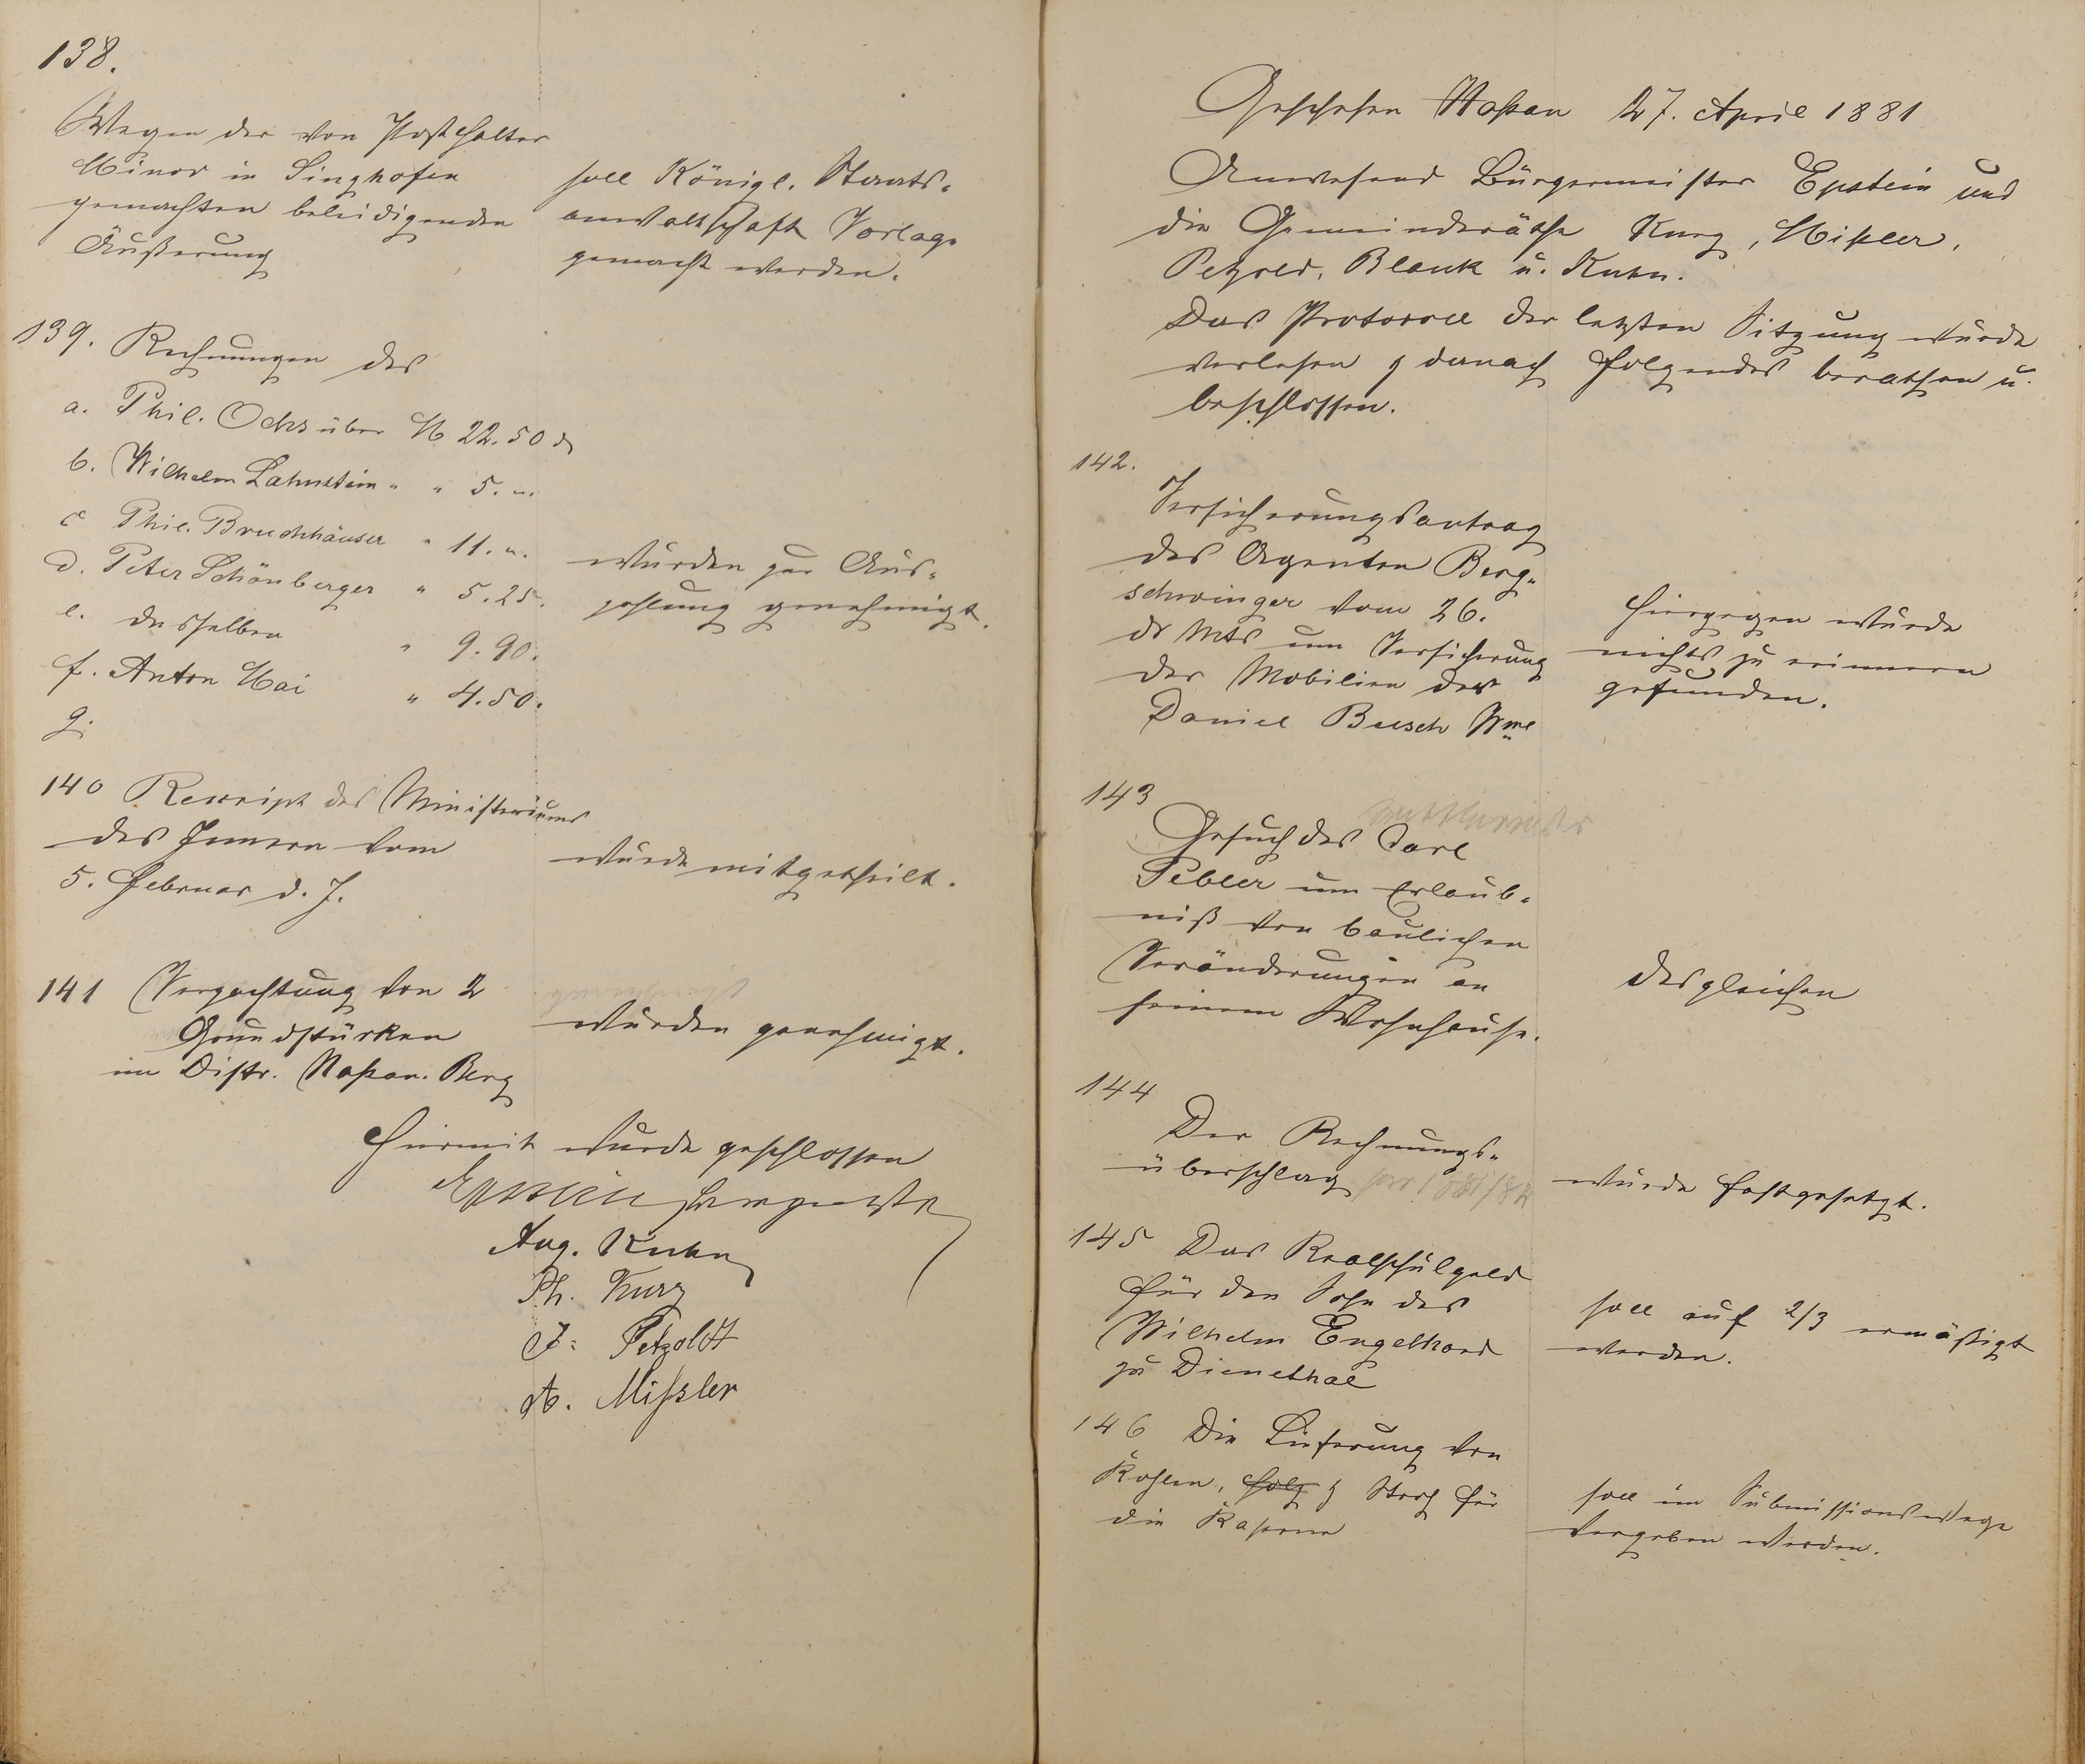 138.
Wegen der von Posthalter
Minor in Singhofen
gemachten beleidigenden
Äußerung
soll Königl. Staats-
anwaltschaft Vorlage
gemacht werden.
139. Rechnungen des
a. Phil. Ochs über M 22.50 ₰
b. Wilhelm Lahnstein " " 5. "
c Phil. Bruchhäuser " 11. "
d. Peter Schönberger " 5.25.
e. desselben " 9.90.
f. Anton Mai " 4.50.
g.
wurden zur Aus-
zahlung genehmigt.
140 Rescript des Ministeriums
des Innern vom
5. Februar d. J.
wurde mitgetheilt.
141 Verpachtung von 2
Grundstücken
im Distr. Naßau. Berg
wurden genehmigt.
Hiermit wurde geschlossen
Epstein Bürgermstr
Aug. Kuhn
Ph. Kurz
J. Petzoldt
A. Mißler
Geschehen Naßau 27. April 1881
Anwesend Bürgermeister Epstein und
die Gemeinderäthe Kurz, Mißler,
Petzold, Blank u. Kuhn.
Das Protocoll der letzten Sitzung wurde
verlesen & danach Folgendes berathen u.
beschlossen.
142.
Versicherungsantrag
des Agenten Berg-
schwinger vom 26.
ds Mts um Versicherung
der Mobilien der
Daniel Busch Wwe
Hiergegen wurde
nichts zu erinnern
gefunden.
143
Gesuch des Carl
Pebler um Erlaub-
niß von baulichen
Veränderungen an
seinem Wohnhause.
desgleichen
144
Der Rechnungs-
überschlag pro 1881/82
wurde festgesetzt.
145 Das Realschulgeld
für den Sohn des
Wilhelm Engelhard
zu Dienethal
soll auf 2/3 ermäßigt
werden.
146 Die Lieferung von
Kohlen, Holz & Stroh für
die Kaserne
soll im Submissionswege
vergeben werden.